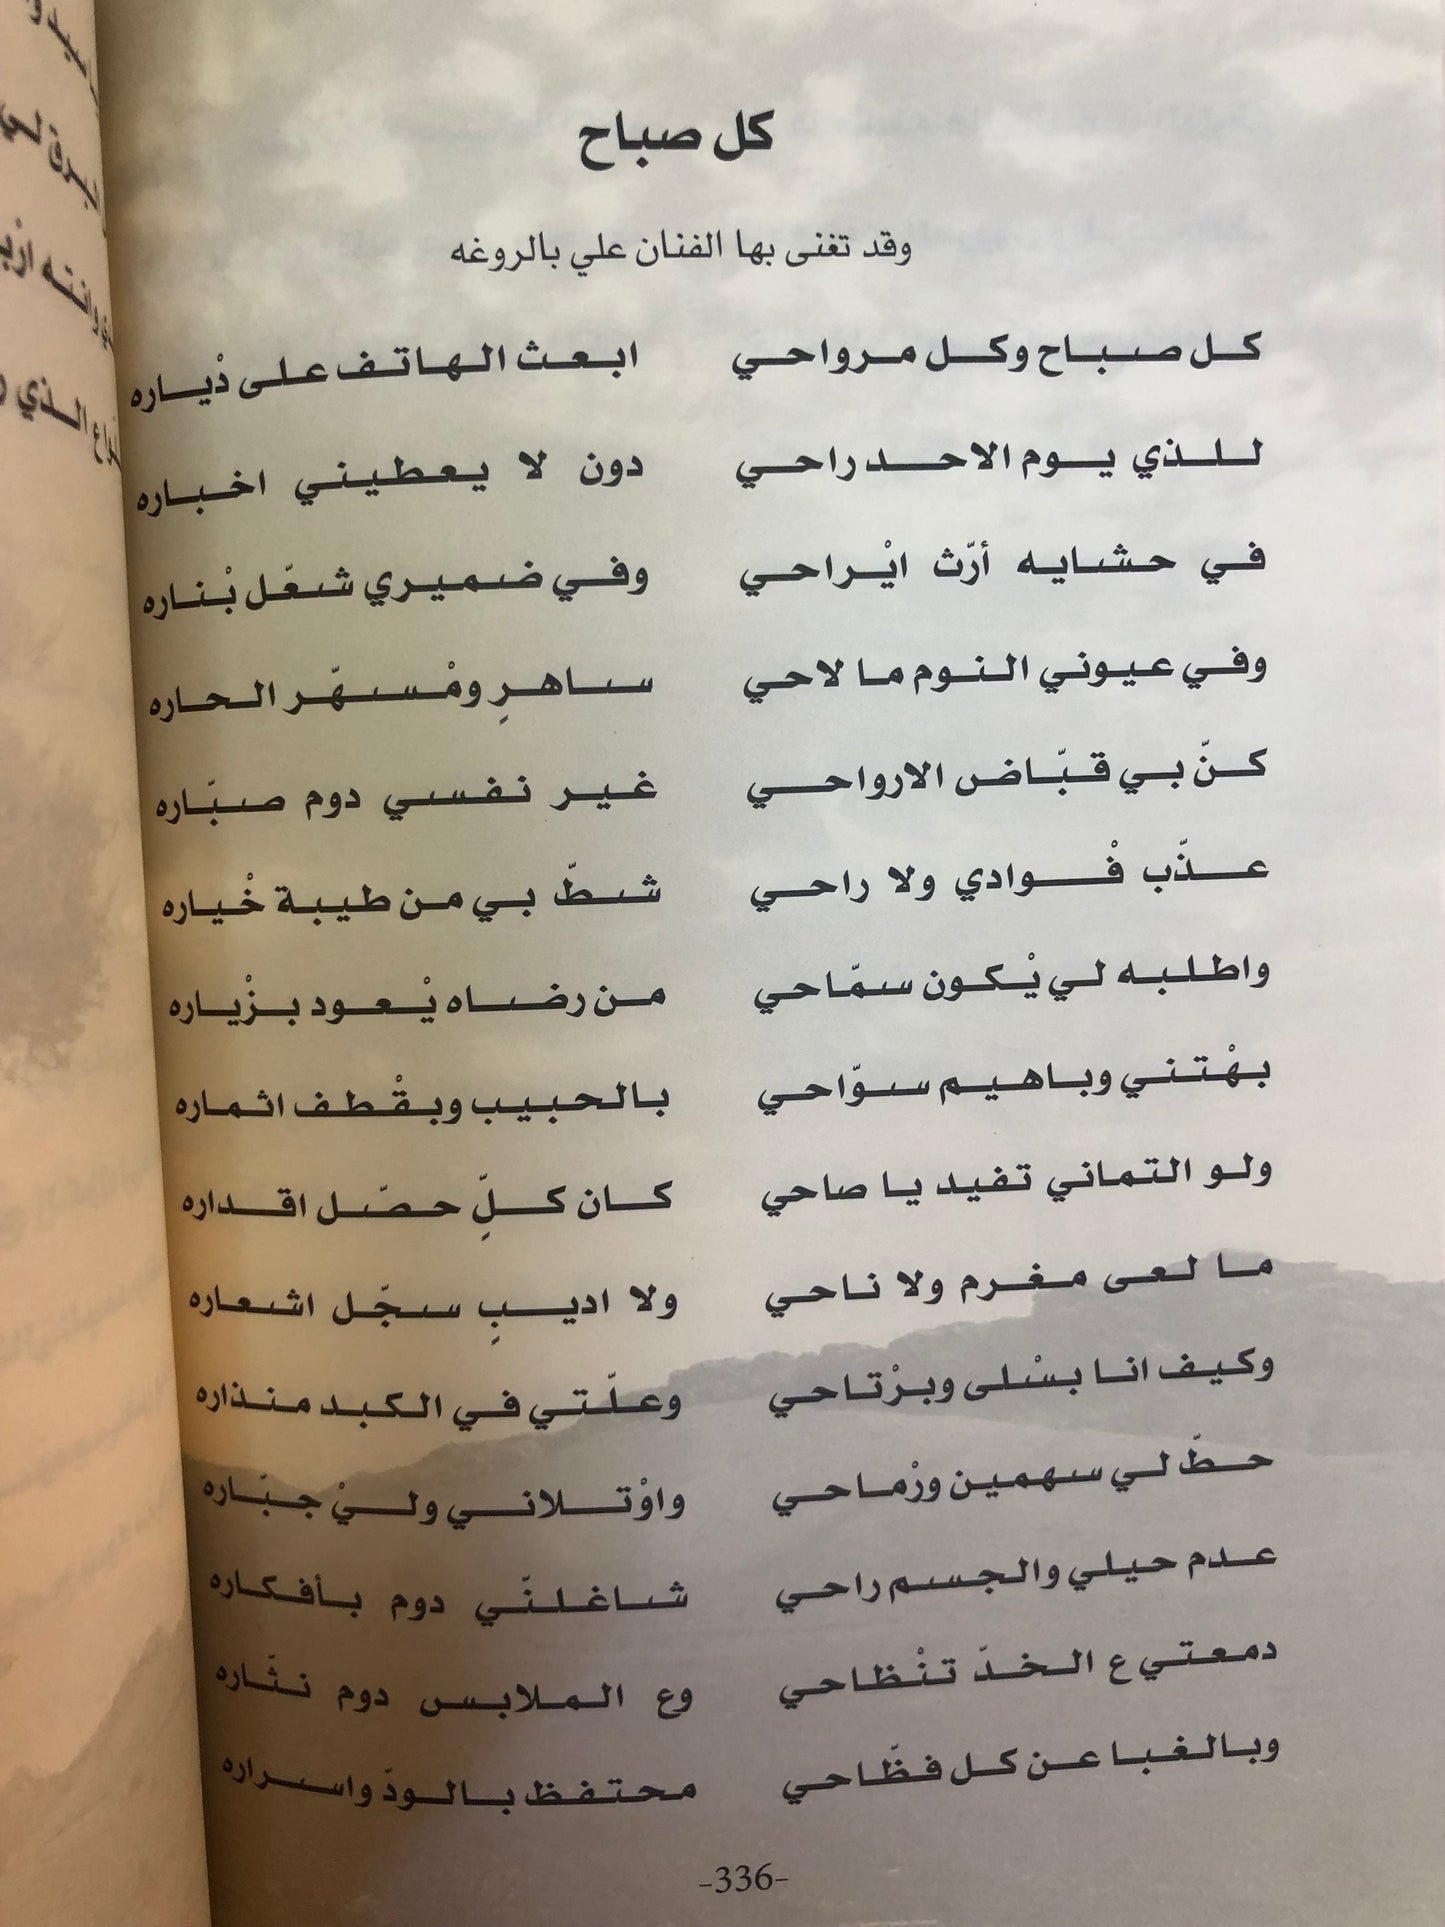 كل صباح
وقد تغنى بها الفنان علي بالروغه
كل صباح وكل مرواحي ابعث الهاتف على دْياره
للذي يوم الاحد راحي دون لا يعطيني اخباره
في حشايه أرّث ايْراحي وفي ضميري شعّل بْناره
وفي عيوني النوم ما لاحي ساهرٍ ومْسهّر الحاره
كنّ بي قبّاض الارواحي غير نفسي دوم صبّاره
عذّب فْوادي ولا راحي شطّ بي من طيبة خْياره
واطلبه لي يْكون سمّاحي من رضاه يْعود بزْياره
بهْتني وباهيم سوّاحي بالحبيب وبقْطف اثماره
ولو التماني تفيد يا صاحي كان كلٍّ حصّل اقداره
ما لعى مغرم ولا ناحي ولا اديبٍ سجّل اشعاره
وكيف انا بسْلى وبرْتاحي وعلّتي في الكبد منذاره
حطّ لي سهمين ورْماحي واوْتلاني وليْ جبّاره
عدم حيلي والجسم راحي شاغلنّي دوم بأفكاره
دمعتي ع الخدّ تنْظاحي وع الملابس دوم نثّاره
وبالغبا عن كل فظّاحي محتفظ بالودّ واسراره
-336-